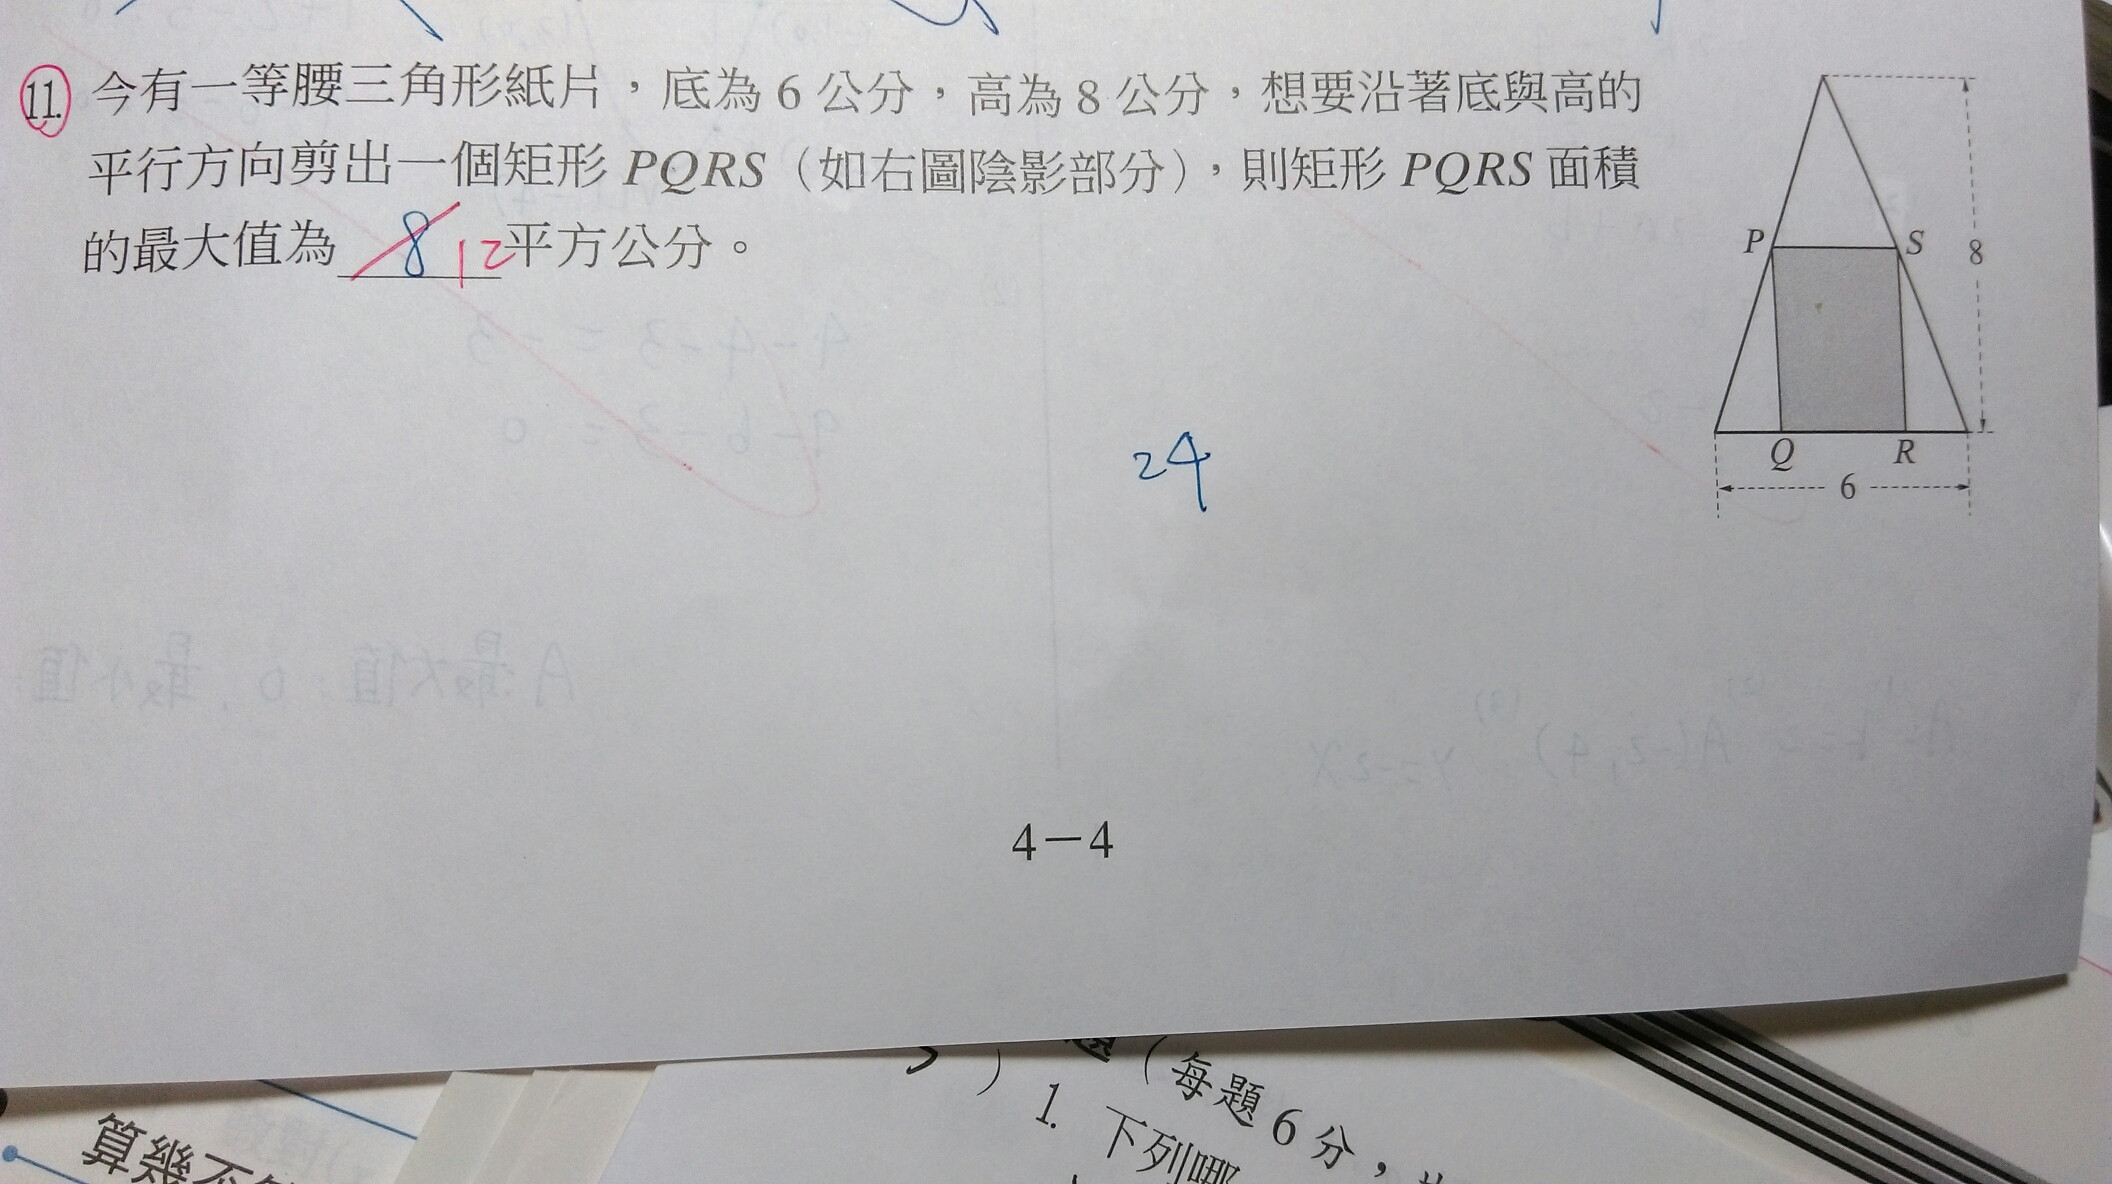 11. 今有一等腰三角形紙片，底為 6 公分，高為 8 公分，想要沿著底與高的
平行方向剪出一個矩形 PQRS（如右圖陰影部分），則矩形 PQRS 面積
的最大值為 8 12 平方公分。
P
S
8
Q
R
6
24
4－4
（每題 6 分，
1. 下列哪
算幾不